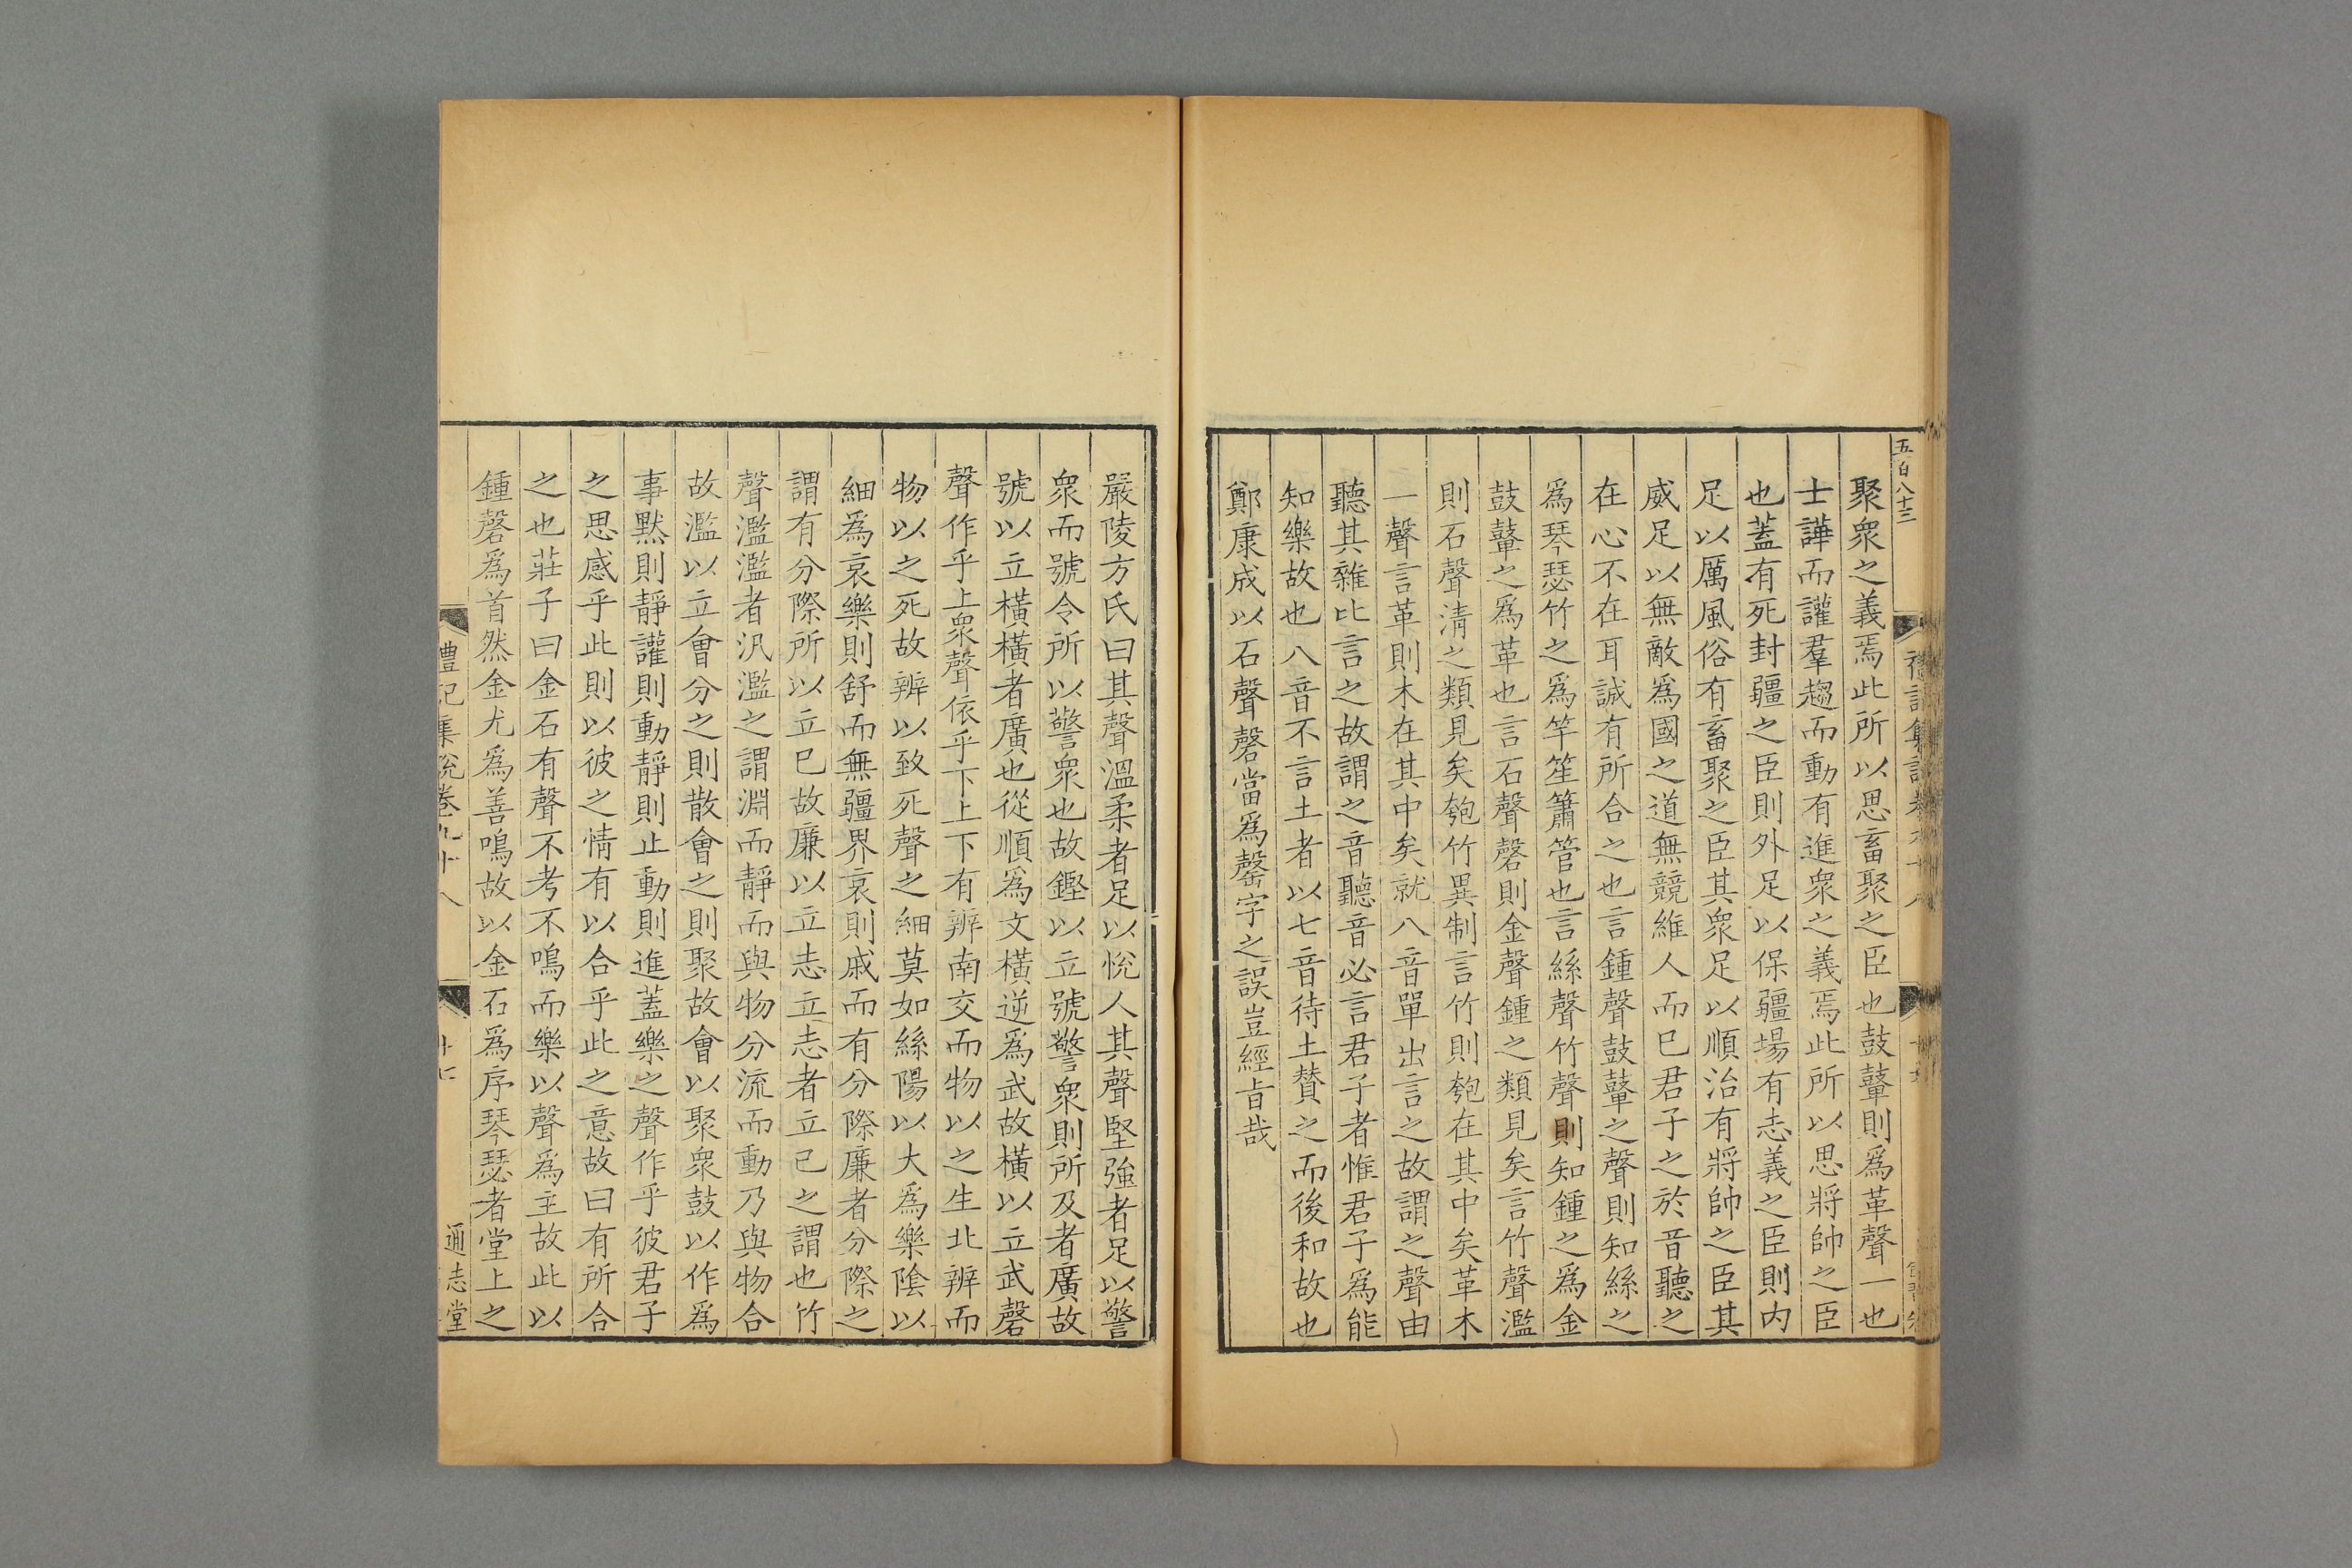 五百八十三
聚衆之義焉此所以思畜聚之臣也鼓鼙則爲革聲一也
士譁而讙羣趨而動有進衆之義焉此所以思將帥之臣
也蓋有死封疆之臣則外足以保疆埸有志義之臣則内
足以厲風俗有畜聚之臣其衆足以順治有將帥之臣其
威足以無敵爲國之道無競維人而已君子之於音聽之
在心不在耳誠有所合之也言鍾聲鼓鼙之聲則知絲之
爲琴瑟竹之爲竽笙簫管也言絲聲竹聲則知鍾之爲金
鼓鼙之爲革也言石聲磬則金聲鍾之類見矣言竹聲濫
則石聲清之類見矣匏竹異制言竹則匏在其中矣革木
一聲言革則木在其中矣就八音單出言之故謂之聲由
聽其雜比言之故謂之音聽音必言君子者惟君子爲能
知樂故也八音不言土者以七音待土賛之而後和故也
鄭康成以石聲磬當爲罄字之誤豈經旨哉
嚴陵方氏曰其聲溫柔者足以悅人其聲堅強者足以警
衆而號令所以警衆也故鏗以立號警衆則所及者廣故
號以立橫橫者廣也從順爲文橫逆爲武故橫以立武磬
聲作乎上衆聲依乎下上下有辨南交而物以之生北辨而
物以之死故辨以致死聲之細莫如絲陽以大爲樂陰以
細爲哀樂則舒而無疆界哀則戚而有分際廉者分際之
謂有分際所以立已故廉以立志立志者立已之謂也竹
聲濫濫者汎濫之謂淵而靜而與物分流而動乃與物合
故濫以立會分之則散會之則聚故會以聚衆鼓以作爲
事默則靜讙則動靜則止動則進蓋樂之聲作乎彼君子
之思感乎此則以彼之情有以合乎此之意故曰有所合
之也莊子曰金石有聲不考不鳴而樂以聲爲主故此以
鍾磬爲首然金尤爲善鳴故以金石爲序琴瑟者堂上之
禮記集說卷九十八
通志堂